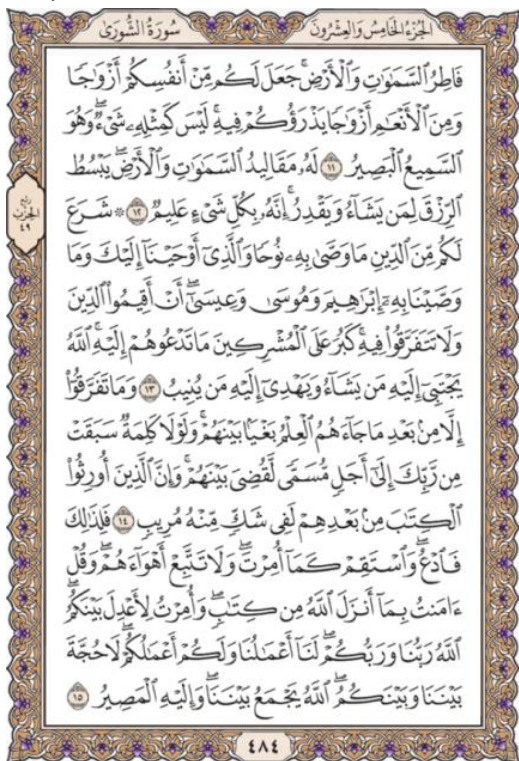 الجزء الخامس والعشرون
سورة الشورى
فَاطِرُ ٱلسَّمَٰوَٰتِ وَٱلْأَرْضِۚ جَعَلَ لَكُم مِّنْ أَنفُسِكُمْ أَزْوَٰجًا
وَمِنَ ٱلْأَنْعَٰمِ أَزْوَٰجًا يَذْرَؤُكُمْ فِيهِۚ لَيْسَ كَمِثْلِهِۦ شَىْءٌۖ وَهُوَ
ٱلسَّمِيعُ ٱلْبَصِيرُ ١١ لَهُۥ مَقَالِيدُ ٱلسَّمَٰوَٰتِ وَٱلْأَرْضِۖ يَبْسُطُ
ٱلرِّزْقَ لِمَن يَشَآءُ وَيَقْدِرُۚ إِنَّهُۥ بِكُلِّ شَىْءٍ عَلِيمٌ ١٢ ۞ شَرَعَ
لَكُم مِّنَ ٱلدِّينِ مَا وَصَّىٰ بِهِۦ نُوحًا وَٱلَّذِىٓ أَوْحَيْنَآ إِلَيْكَ وَمَا
وَصَّيْنَا بِهِۦٓ إِبْرَٰهِيمَ وَمُوسَىٰ وَعِيسَىٰٓۖ أَنْ أَقِيمُوا۟ ٱلدِّينَ
وَلَا تَتَفَرَّقُوا۟ فِيهِۚ كَبُرَ عَلَى ٱلْمُشْرِكِينَ مَا تَدْعُوهُمْ إِلَيْهِۚ ٱللَّهُ
يَجْتَبِىٓ إِلَيْهِ مَن يَشَآءُ وَيَهْدِىٓ إِلَيْهِ مَن يُنِيبُ ١٣ وَمَا تَفَرَّقُوٓا۟
إِلَّا مِنۢ بَعْدِ مَا جَآءَهُمُ ٱلْعِلْمُ بَغْيًۢا بَيْنَهُمْۚ وَلَوْلَا كَلِمَةٌ سَبَقَتْ
مِن رَّبِّكَ إِلَىٰٓ أَجَلٍ مُّسَمًّى لَّقُضِىَ بَيْنَهُمْۚ وَإِنَّ ٱلَّذِينَ أُورِثُوا۟
ٱلْكِتَٰبَ مِنۢ بَعْدِهِمْ لَفِى شَكٍّ مِّنْهُ مُرِيبٍ ١٤ فَلِذَٰلِكَ
فَٱدْعُۖ وَٱسْتَقِمْ كَمَآ أُمِرْتَۖ وَلَا تَتَّبِعْ أَهْوَآءَهُمْۖ وَقُلْ
ءَامَنتُ بِمَآ أَنزَلَ ٱللَّهُ مِن كِتَٰبٍۖ وَأُمِرْتُ لِأَعْدِلَ بَيْنَكُمُۖ
ٱللَّهُ رَبُّنَا وَرَبُّكُمْۖ لَنَآ أَعْمَٰلُنَا وَلَكُمْ أَعْمَٰلُكُمْۖ لَا حُجَّةَ
بَيْنَنَا وَبَيْنَكُمُۖ ٱللَّهُ يَجْمَعُ بَيْنَنَاۖ وَإِلَيْهِ ٱلْمَصِيرُ ١٥
ربع
الحزب
٤٩
٤٨٤